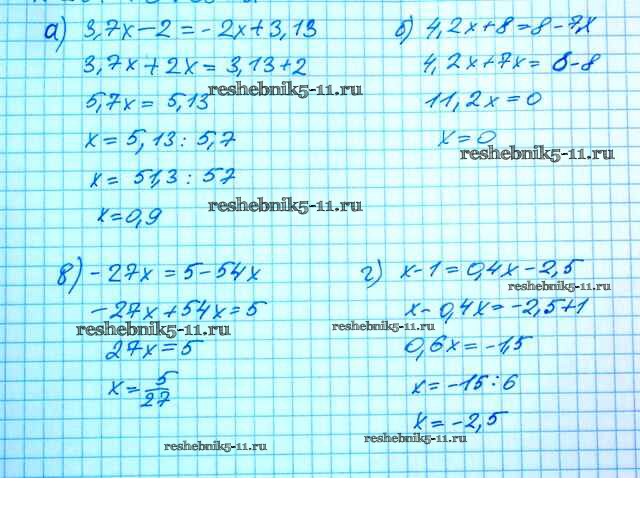 а) 3,7x-2=-2x+3,13
3,7x+2x=3,13+2
reshebnik5-11.ru
5,7x=5,13
x=5,13:5,7
x=51,3:57
reshebnik5-11.ru
x=0,9
б) 4,2x+8=8-7x
4,2x+7x=8-8
11,2x=0
x=0
reshebnik5-11.ru
в) -27x=5-54x
-27x+54x=5
reshebnik5-11.ru
27x=5
x=5/27
reshebnik5-11.ru
г) x-1=0,4x-2,5
reshebnik5-11.ru
x-0,4x=-2,5+1
reshebnik5-11.ru
0,6x=-1,5
x=-15:6
x=-2,5
reshebnik5-11.ru